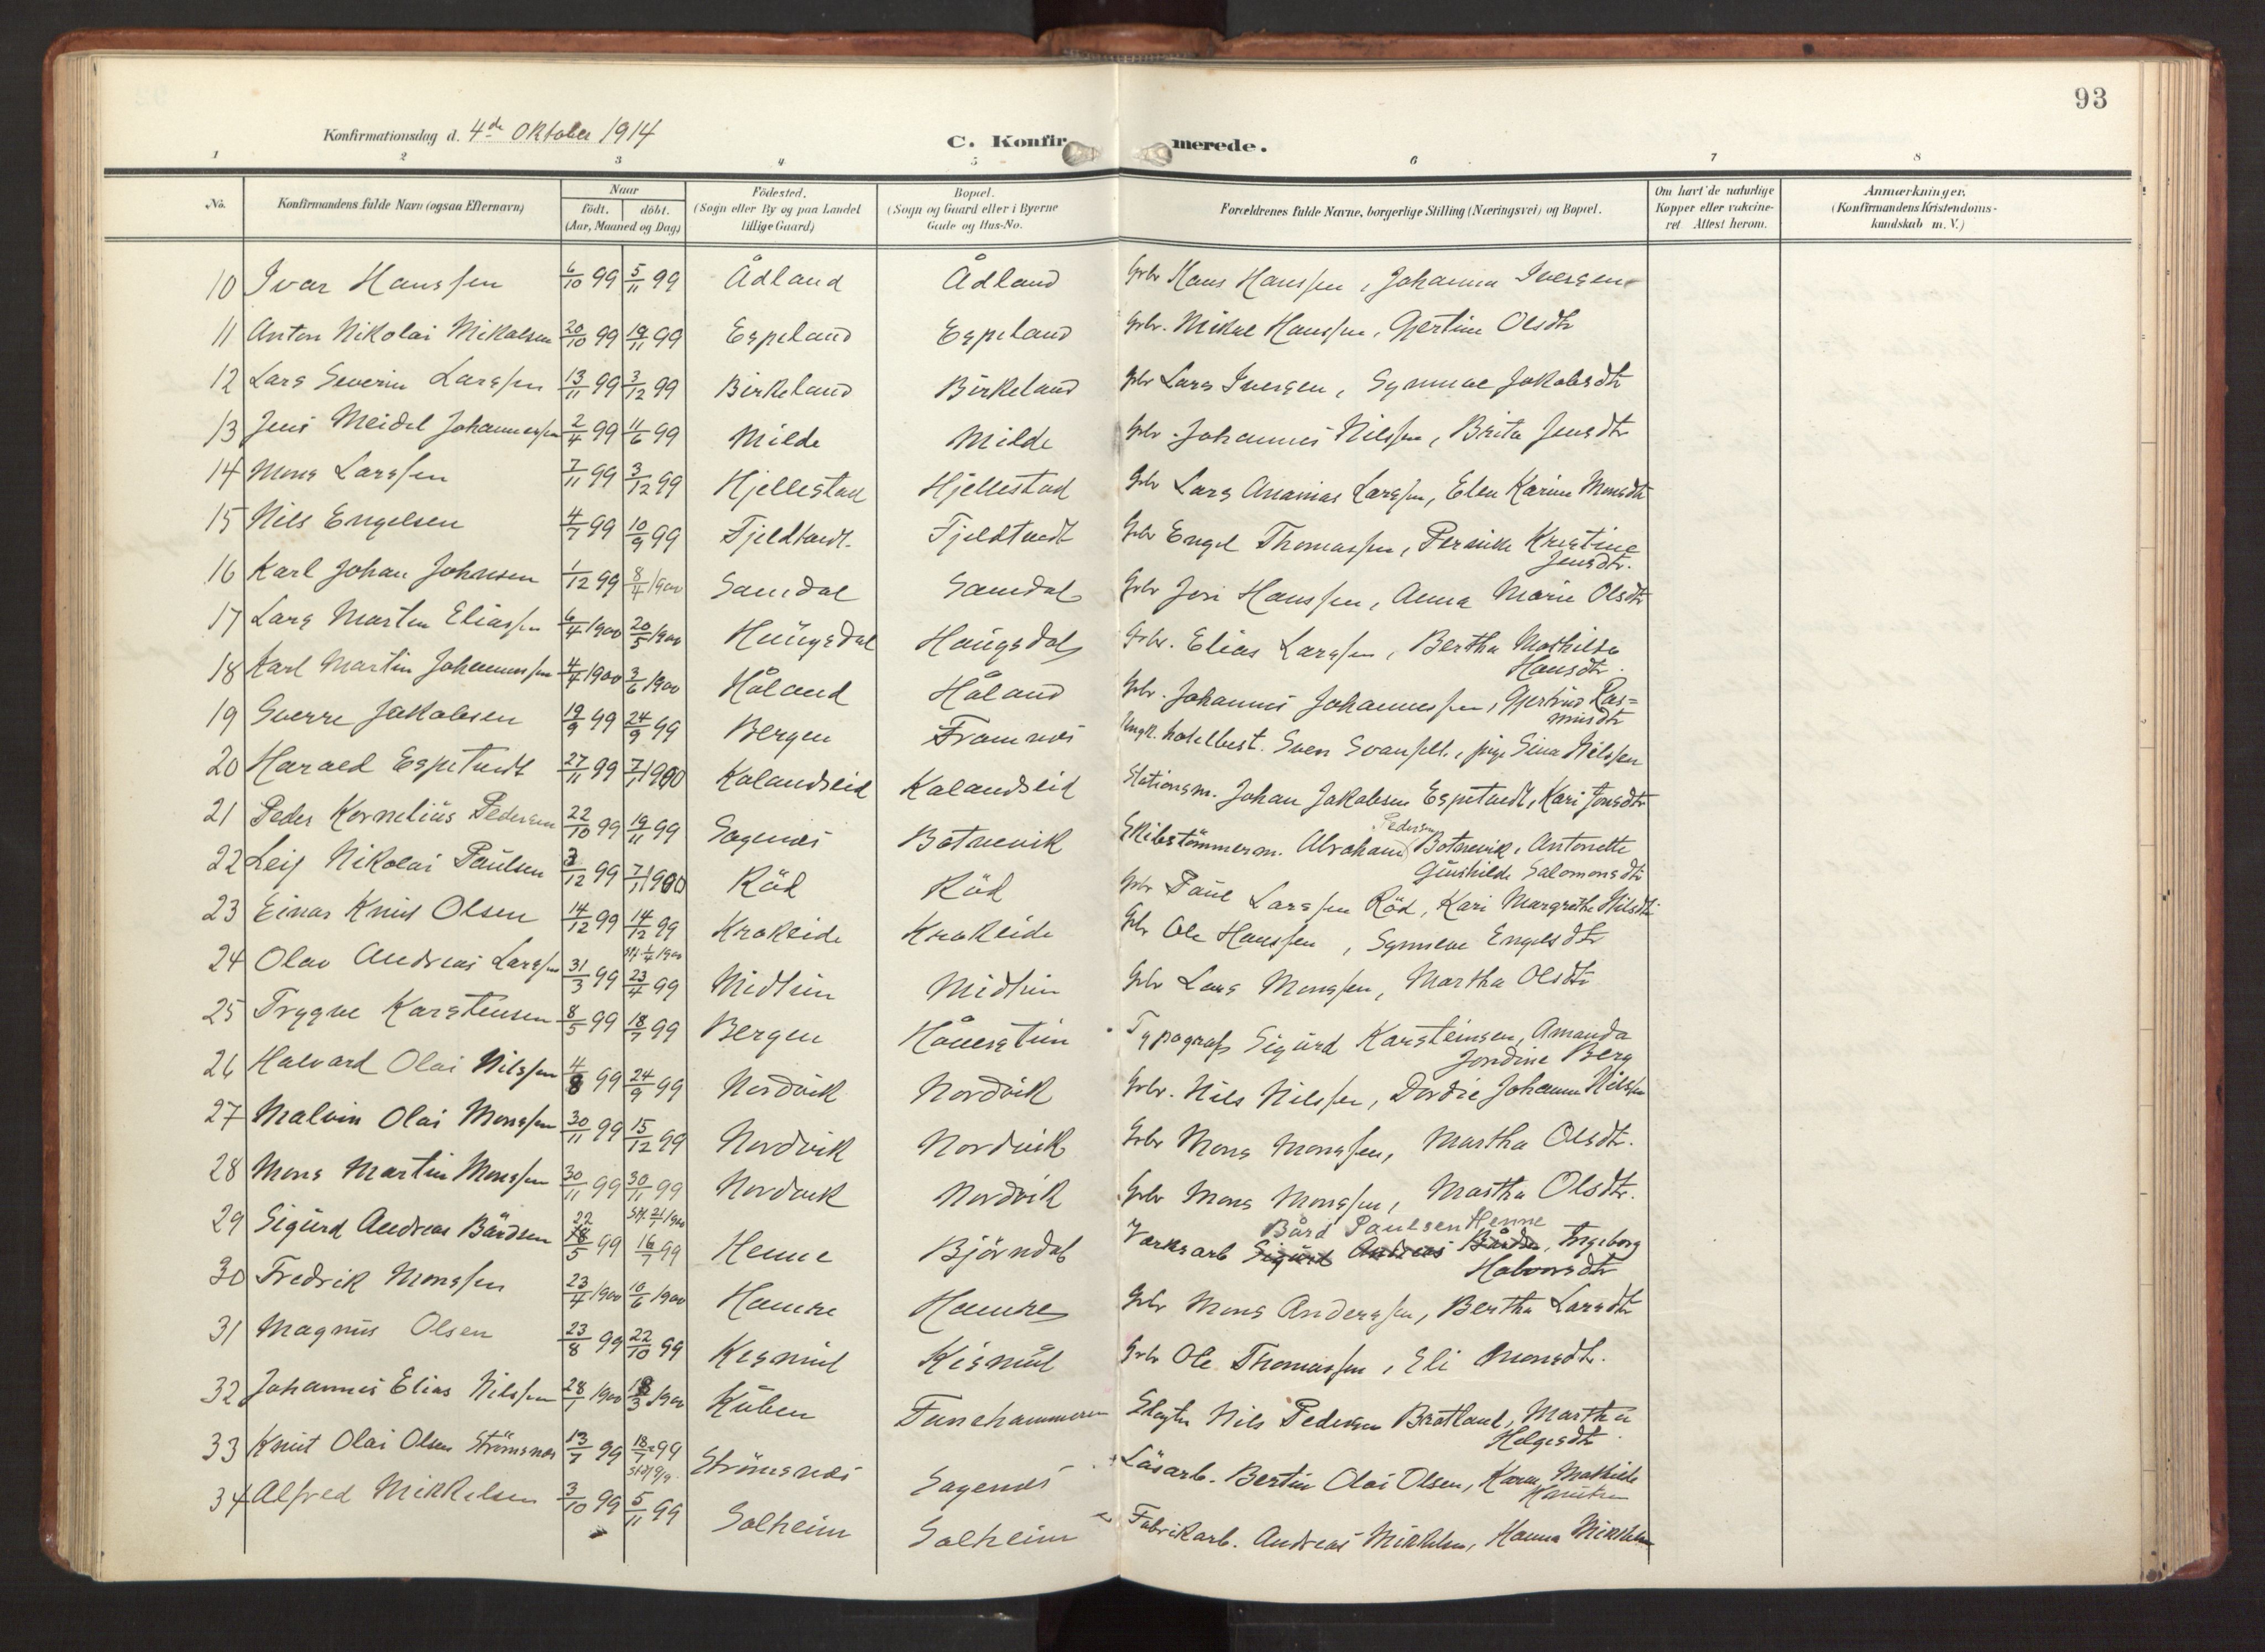 93
Konfirmationsdag d. 4de Oktober 1914
C. Konfirmerede.
1 2 3 4 5 6 7 8
No. Konfirmandens fulde Navn (ogsaa Efternavn) Naar født. døbt. (Aar, Maaned og Dag) Fødested. (Sogn eller By og paa Landet tillige Gaard) Bopæl. (Sogn og Gaard eller i Byerne Gade og Hus-No. Forældrenes fulde Navne, borgerlige Stilling (Næringsvei) og Bopæl. Om havt de naturlige Kopper eller vakcineret Attest herom. Anmærkninger. (Konfirmandens Kristendomskundskab m. V.)
10 Ivar Hanssen 6/10 99 5/11 99 Ådland Ådland Gbr Hans Hanssen, Johanna Iversen
11 Anton Nikolai Mikalsen 20/10 99 19/11 99 Espeland Espeland Gbr. Mikal Hanssen, Gjertine Olsdtr
12 Lars Severin Larssen 13/11 99 3/12 99 Birkeland Birkeland Gbr Lars Iversen, Synneve Jakobsdtr
13 Jens Meidel Johannessen 2/4 99 11/6 99 Milde Milde Gbr. Johannes Nilssen, Brita Jensdtr
14 Mons Larssen 7/11 99 3/12 99 Hjellestad Hjellestad Gbr Lars Ananias Larssen, Elen Karine Monsdtr
15 Nils Engelsen 4/7 99 10/9 99 Fjeldtvedt Fjeldtvedt Gbr Engel Thomassen, Pernille Kristine
Jensdtr.
16 Karl Johan Johnsen 1/12 99 8/4 1900 Samdal Samdal Gbr Jon Hanssen, Anna Marie Olsdtr
17 Lars Martin Eliassen 6/4 1900 20/5 1900 Haugsdal Haugsdal Gbr. Elias Larssen, Bertha Mathilda
Hansdtr.
18 Karl Martin Johannessen 4/4 1900 3/6 1900 Håland Håland Gbr. Johannes Johannessen, Gjertrud Ras=
musdtr
19 Sverre Jakobsen 19/9 99 24/9 99 Bergen Framnes Ungk. hotelbest. Sven , pige Sina Nilssen
20 Harald Espetvedt 27/11 99 7/1 1900 Kalandseid Kalandseid Stationsm. Johan Jakobsen Espetvedt, Kari Jonsdtr
21 Peder Kornelius Pedersen 22/10 99 19/11 99 Sagenes Botnevik Skibstömmerm. Abraham Pedersen Botnevik, Antonette
Gunhilde Salomonsdtr
22 Leif Nikolai Paulsen 3/12 99 7/1 1900 Röd Röd Gbr Paul Larssen Röd, Kari Margrethe Nilsdtr
23 Einar Knut Olsen 14/12 99 14/12 99 Krokeide Krokeide Gbr Ole Hanssen, Synneve Engelsdtr
24 Olav Andreas Larssen 31/3 99 23/4 99 Midttun Midttun Gbr Lars Monssen, Martha Olsdtr
25 Trygve Karstensen 8/5 99 18/7 99 Bergen Håverstun Typograf Sigurd Karsteinsen, Amanda
Jondine Berg
26 Halvard Olai Nilssen 4/8 99 24/9 99 Nordvik Nordvik Gbr. Nils Nilssen, Dordie Johanne Nilssen
27 Malvin Olai Monssen 30/11 99 15/12 99 Nordvik Nordvik Gbr Mons Monssen, Martha Olsdtr.
28 Mons Martin Monssen 30/11 99 30/11 99 Nordvik Nordvik Gbr Mons Monssen, Martha Olsdtr.
St. 21/1 1900
29 Sigurd Andreas Bårdsen 22/5 99 16/7 99 Henne Björndal Værksarb Bård Paulsen Henne Sigurd Andreas Bårdsen, Ingeborg
Halvorsdtr
30 Fredrik Monssen 23/4 1900 10/6 1900 Hamre Hamre Gbr Mons Anderssen, Bertha Larsdtr
31 Magnus Olsen 23/8 99 22/10 99 Kismul Kismul Gbr Ole Thomassen, Eli Monsdtr.
32 Johannes Elias Nilssen 28/1 1900 18/3 1900 Kuben Fanehammeren Slagter Nils Pedersen Bratland, Martha
Helgesdtr
33 Knut Olai Olsen Strömsnes 13/7 99 18/7 99 Strömsnes Sagenes Läsarb. Bertin Olai Olsen, Karen Mathilde
Knutsen
34 Alfred Mikkelsen 3/10 99 5/11 99 Solheim Solheim Fabrikarb. Andreas Mikkelsen, Hanna Mikkelsen